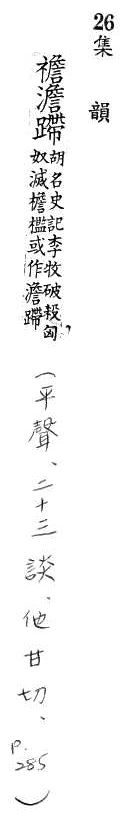 26 集韻
襜澹蹛
胡名史記李牧破殺匈,
奴滅擔檻或作澹蹛
(平聲、二十三談、他甘切、p.285)